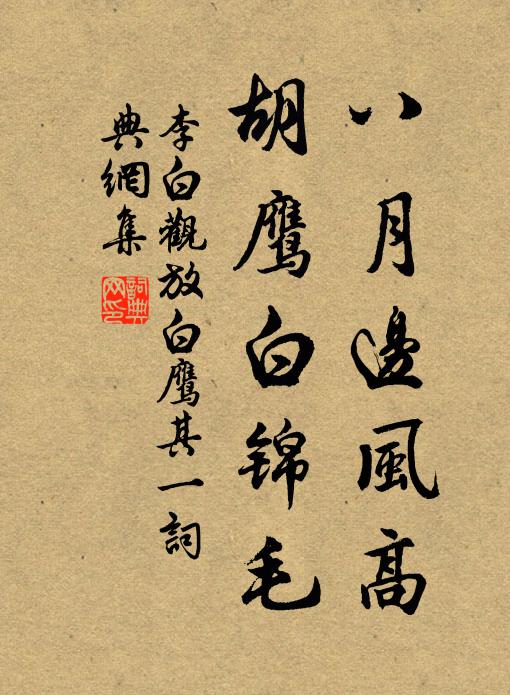 八月邊風高
胡鹰白锦毛
李白觀放白鹰其一詞
典網集
詞典
网印